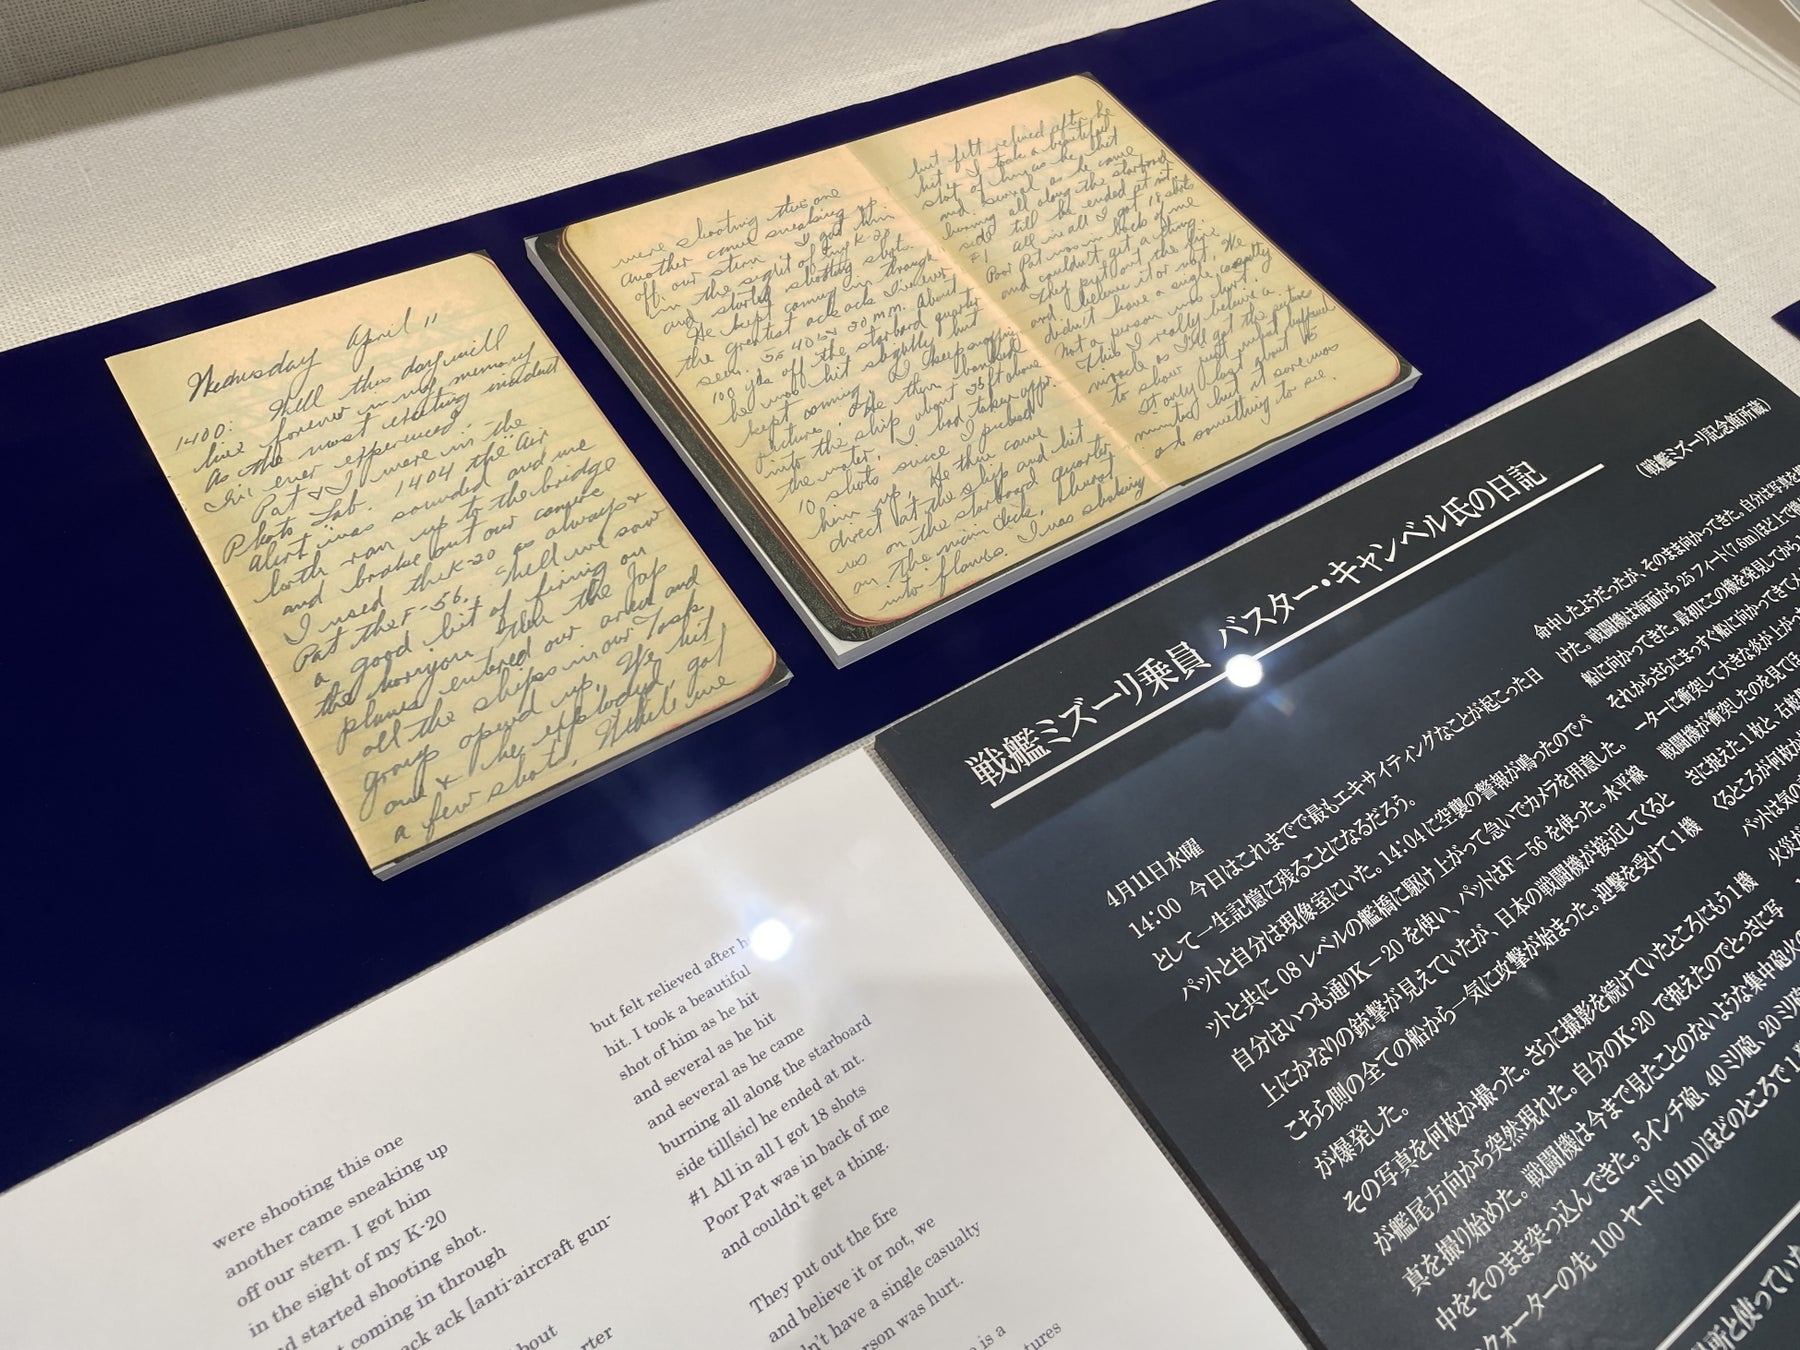 Wednesday April 11
1400: Well this day will
live forever in my memory
as the most exciting incident
I've ever experienced.
Pat & I were in the
Photo Lab. 1404 the "Air
Alert" was sounded and we
both ran up to the bridge
and broke out our camera
I used the K-20 as always &
Pat the F-56. Well we saw
a good bit of firing on
the horizon then the Jap
planes entered our area and
all the ships in our Task
group opened up. We hit
one & he exploded, got
a few shots. While we
were shooting this one
another came sneaking up
off our stern I got him
in the sight of my K-20
and started shooting shot.
He kept coming in through
the greatest ack ack I've ever
seen. 5s 40s & 20 mm. About
100 yds off the starboard quarter
he was hit slightly but
kept coming. I keep snapping
picture. He then
into the ship about 25 ft above
the water, I had taken appr.
10 shots since I picked
him up. He then came
direct at the ship and hit
us on the starboard quarter
on the main deck, burst
into flames. I was shaking
but felt relieved after he
hit I took a beautiful
shot of him as he hit
and several as he came
burning all along the starboard
side till he ended at mt
#1 All in all I got 18 shots
Poor Pat was in back of me
and couldn't get a thing.
They put out the fire
and believe it or not, we
didn't have a single casualty
Not a person was hurt.
This I really believe is a
miracle as I'll get the pictures
to show just what happened
It only last about
minutes but it sure was
something to see.
were shooting this one
another came sneaking up
off our stern. I got him
in the sight of my K-20
nd started shooting shot.
t coming in through
ack ack [anti-aircraft gun-
bout
rter
but felt relieved after h
hit. I took a beautiful
shot of him as he hit
and several as he hit
and several as he came
burning all along the starboard
side till[sic] he ended at mt.
#1 All in all I got 18 shots
Poor Pat was in back of me
and couldn't get a thing.
They put out the fire
and believe it or not, we
dn't have a single casualty
erson was hurt.
e is a
tures
戦艦ミズーリ乗員 バスター・キャンベル氏の日記
（戦艦ミズーリ記念館所蔵）
4月11日水曜
14:00 今日はこれまでで最もエキサイティングなことが起こった日
として一生記憶に残ることになるだろう。
パットと自分は現像室にいた。14:04に空襲の警報が鳴ったのでパ
ットと共に 08 レベルの艦橋に駆け上がって急いでカメラを用意した。
自分はいつも通りK－20 を使い、パットはF－56 を使った。水平線
上にかなりの銃撃が見えていたが、日本の戦闘機が接近してくると
こちら側の全ての船から一気に攻撃が始まった。迎撃を受けて 1 機
が爆発した。
その写真を何枚か撮った。さらに撮影を続けていたところにもう 1 機
が艦尾方向から突然現れた。自分のK-20 で捉えたのでとっさに写
真を撮り始めた。戦闘機は今まで見たことのないような集中砲火の
中をそのまま突っ込んできた。5インチ砲、40ミリ砲、20ミリ砲
クォーターの先 100 ヤード(91m)ほどのところで 1
命中したようだったが、そのまま向かってきた。自分は写真を
けた。戦闘機は海面から 25 フィート(7.6m)ほど上で
船に向かってきた。最初にこの機を発見してから
それからさらにまっすぐ船に向かってきて
ーターに衝突して大きな炎が上がっ
戦闘機が衝突したのを見てほ
さに捉えた 1 枚と、右舷
くるところが何枚か
パットは気の
火災が
所と使ってい